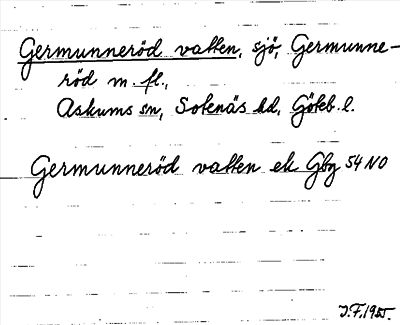 Germunneröd vatten, sjö, Germunne-
röd m. fl.,
Askums sn, Sotenäs hd, Göteb. l.
Germunneröd vatten ek Gbg 54 NO
J.F. 1925.